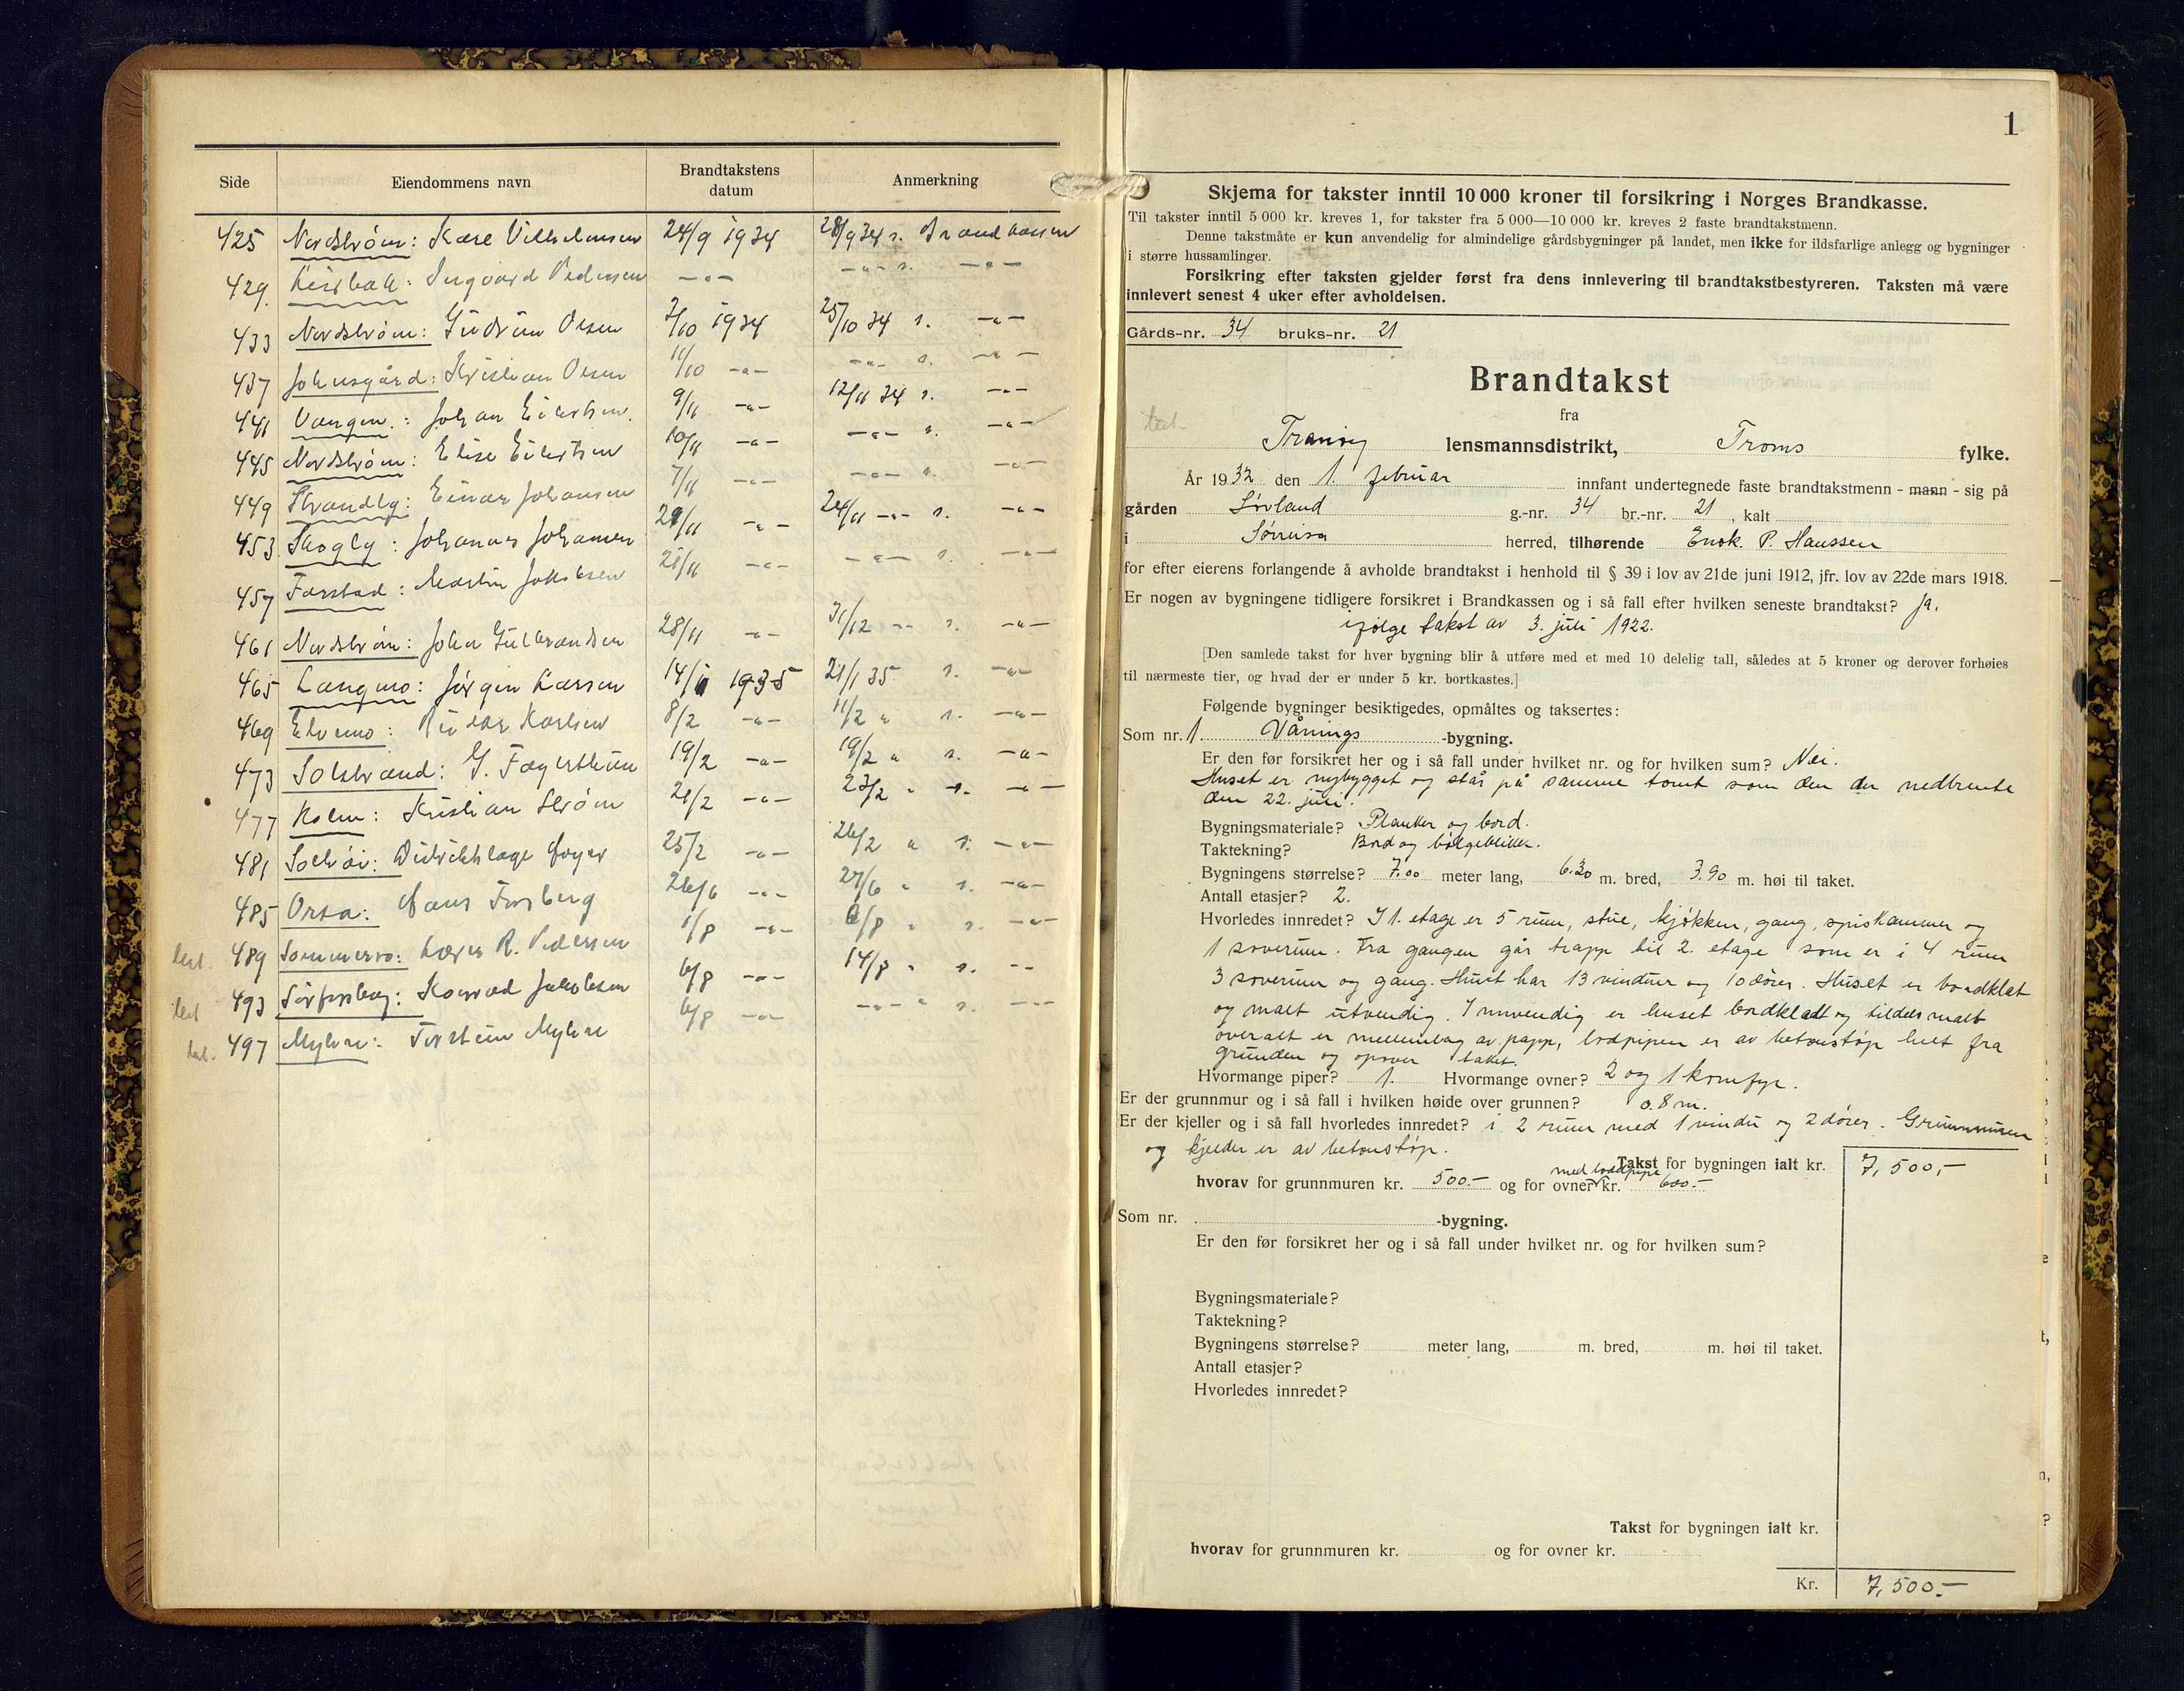 Side Eiendommens navn Brandtakstens datum Anmerkning
425 Nordstrøm: Kåre Vilhelmsen 24/9 1934 28/9 34 s. Brandkassen
429 Ingvard Pedersen -"- -"- s. -"-
433 Nordstrøm: Gudrun Olsen 2/10 1934 25/10 34 s. -"-
437 Johnsgård: Kristian Olsen 11/10 -"- -"- s. -"-
441 Vangen: Johan Eilertsen 9/11 -"- 12/11 34 s. -"-
445 Nordstrøm: Elise Eilertsen 10/11 -"- -"- s. -"-
449 Strandby: Einar Johansen 7/11 -"- -"- s. -"-
453 Skogly: Johannes Johansen 21/11 -"- 24/11 -"- s. -"-
457 Farstad: Martin Jakobsen 21/11 -"- -"- s. -"-
461 Nordstrøm: Johan Gulbrandsen 28/11 -"- 31/12 -"- s. -"-
465 Langmo: Jørgen Larsen 14/1 1935 21/1 35 s. -"-
469 Elvemo: Karlsen 8/2 -"- 11/2 " s. -"-
473 Solstrand: G. Fagerthun 19/2 -"- 19/2 " s. -"-
477 Holm: Kristian Strøm 21/2 -"- 23/2 " s. -"-
481 Solhøi: 25/2 -"- 26/2 " s. -"-
485 Orta: Hans Forsberg 26/6 -"- 27/6 " s. -"-
489 Sommerro: R. Pedersen 1/8 -"- 6/8 " s. -"-
493 Sørforsberg: Konrad Jakobsen 6/8 -"- 14/8 " s. -"-
497 Myhre: Torstein Myhre 6/8 -"- -"- " s. -"-
1
Skjema for takster inntil 10 000 kroner til forsikring i Norges Brandkasse.
Til takster inntil 5 000 kr. kreves 1, for takster fra 5 000—10 000 kr. kreves 2 faste brandtakstmenn.
Denne takstmåte er kun anvendelig for almindelige gårdsbygninger på landet, men ikke for ildsfarlige anlegg og bygninger
i større hussamlinger.
Forsikring efter taksten gjelder først fra dens innlevering til brandtakstbestyreren. Taksten må være
innlevert senest 4 uker efter avholdelsen.
Gårds-nr. 34 bruks-nr. 21
Brandtakst
fra
Tranøy lensmannsdistrikt, Troms fylke.
År 1932 den 1. februar innfant undertegnede faste brandtakstmenn - mann - sig på
gården Sørland g.-nr. 34 br.-nr. 21, kalt
i Sørreisa herred, tilhørende Enok. P. Hanssen
for efter eierens forlangende å avholde brandtakst i henhold til § 39 i lov av 21de juni 1912, jfr. lov av 22de mars 1918.
Er nogen av bygningene tidligere forsikret i Brandkassen og i så fall efter hvilken seneste brandtakst? Ja.
ifølge takst av 3. juli 1922.
[Den samlede takst for hver bygning blir å utføre med et med 10 delelig tall, således at 5 kroner og derover forhøies
til nærmeste tier, og hvad der er under 5 kr. bortkastes.]
Følgende bygninger besiktigedes, opmåltes og taksertes:
Som nr. 1 Vånings -bygning.
Er den før forsikret her og i så fall under hvilket nr. og for hvilken sum? Nei.
Huset er nybygget og står på samme tomt som den der nedbrente
den 22. juli.
Bygningsmateriale? Planker og bord.
Taktekning? Bord og bølgeblikk.
Bygningens størrelse? 7.00 meter lang, 6.20 m. bred, 3.90 m. høi til taket.
Antall etasjer? 2.
Hvorledes innredet? I 1. etage er 5 rum, stue, kjøkken, gang, spiskammer og
1 soverum. Fra gangen går trapp til 2. etage som er i 4 rum
3 soverum og gang. Huset har 13 vinduer og 10 dører. Huset er bordklæt
og malt utvendig. Innvendig er huset bordklædt og tildels malt
overalt er mellemlag av papp, brdpipen er av betonstøp helt fra
grunden og opover taket.
Hvormange piper? 1. Hvormange ovner? 2 og 1 komfyr.
Er der grunnmur og i så fall i hvilken høide over grunnen? 0.8 m.
Er der kjeller og i så fall hvorledes innredet? i 2 rum med 1 vindu og 2 dører. Grunnmuren
og kjelder er av betonstøp.
Takst for bygningen ialt kr. 7,500,-
hvorav for grunnmuren kr. 500.- og for ovner med brdpipe kr. 600.-
Som nr. -bygning.
Er den før forsikret her og i så fall under hvilket nr. og for hvilken sum?
Bygningsmateriale?
Taktekning?
Bygningens størrelse? meter lang, m. bred, m. høi til taket.
Antall etasjer?
Hvorledes innredet?
Takst for bygningen ialt kr.
hvorav for grunnmuren kr. og for ovner kr.
Kr. 7,500.-